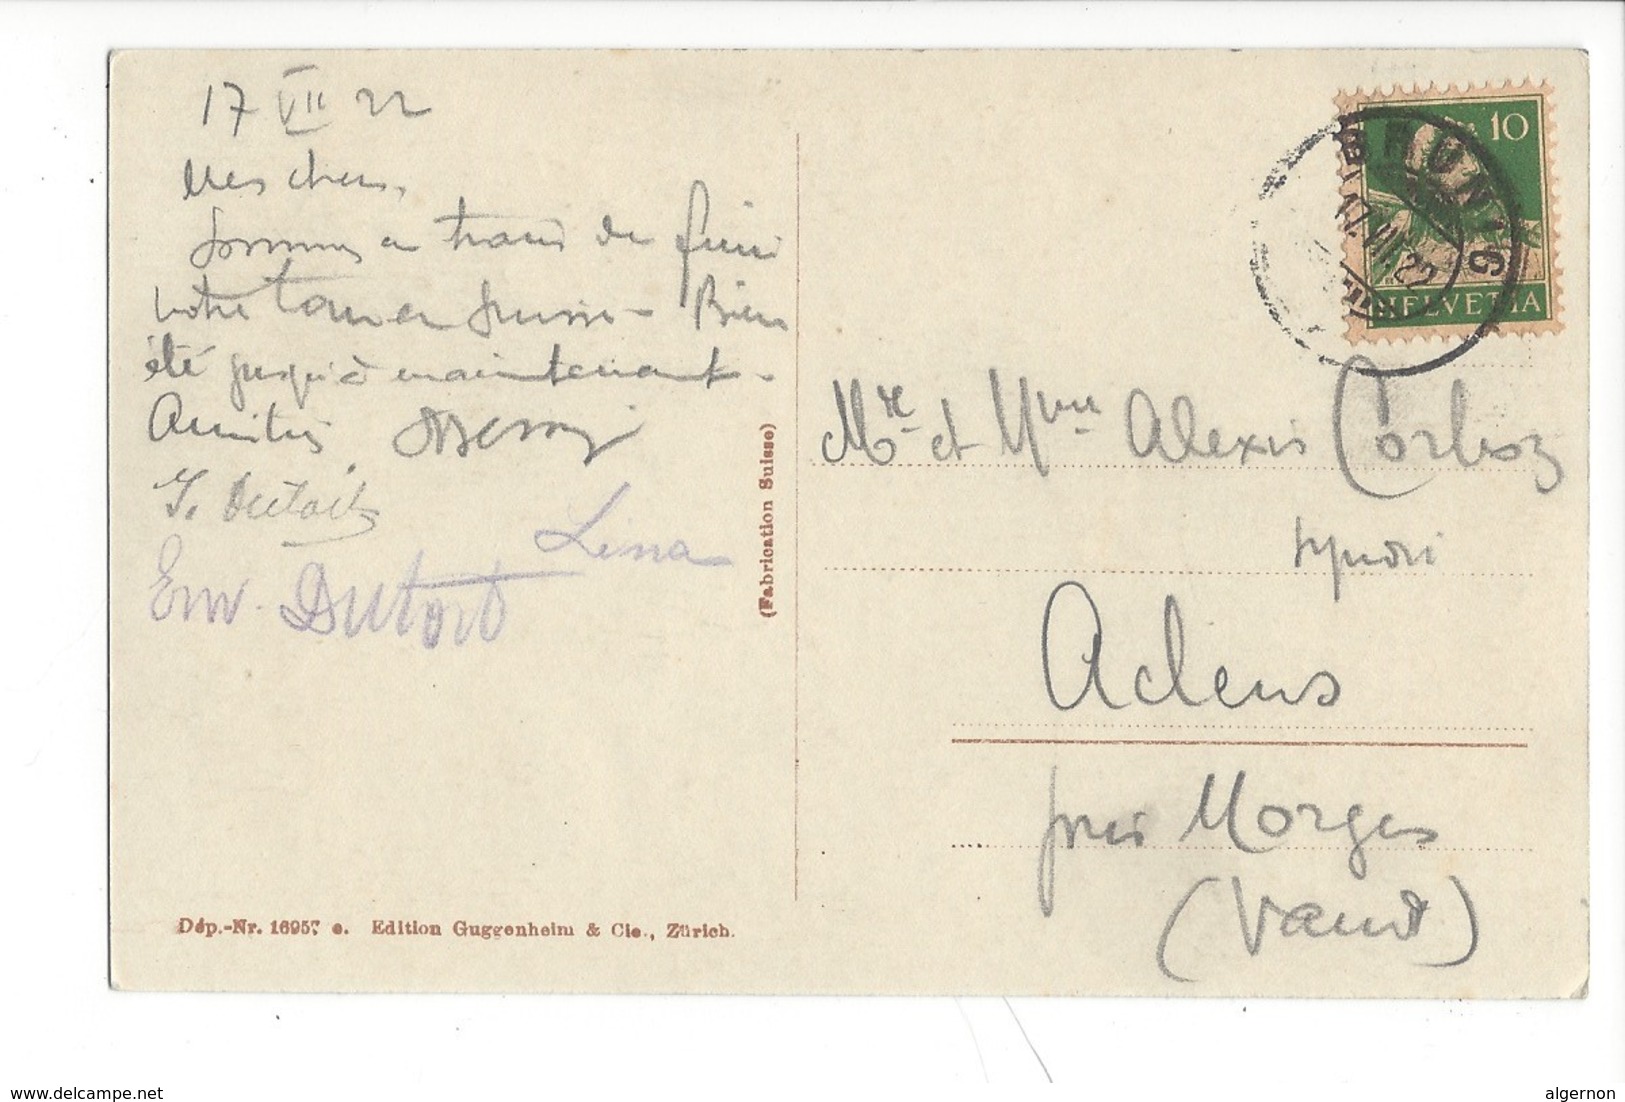 17 VII 22
Mes chers,
Sommes en train de finir
notre tour en Suisse - Bien
été jusqu'à maintenant -
Amitiés
J. Dutoit
Lina
Em. Dutoit
(Fabrication Suisse)
Dép.-Nr. 16957 e. Edition Guggenheim & Cie., Zürich.
10
HELVETIA
BRÜNIG
17.VII.22
Mr et Mme Alexis Corboz
syndic
Aclens
près Morges
(Vaud)
delcampe.net
algernon